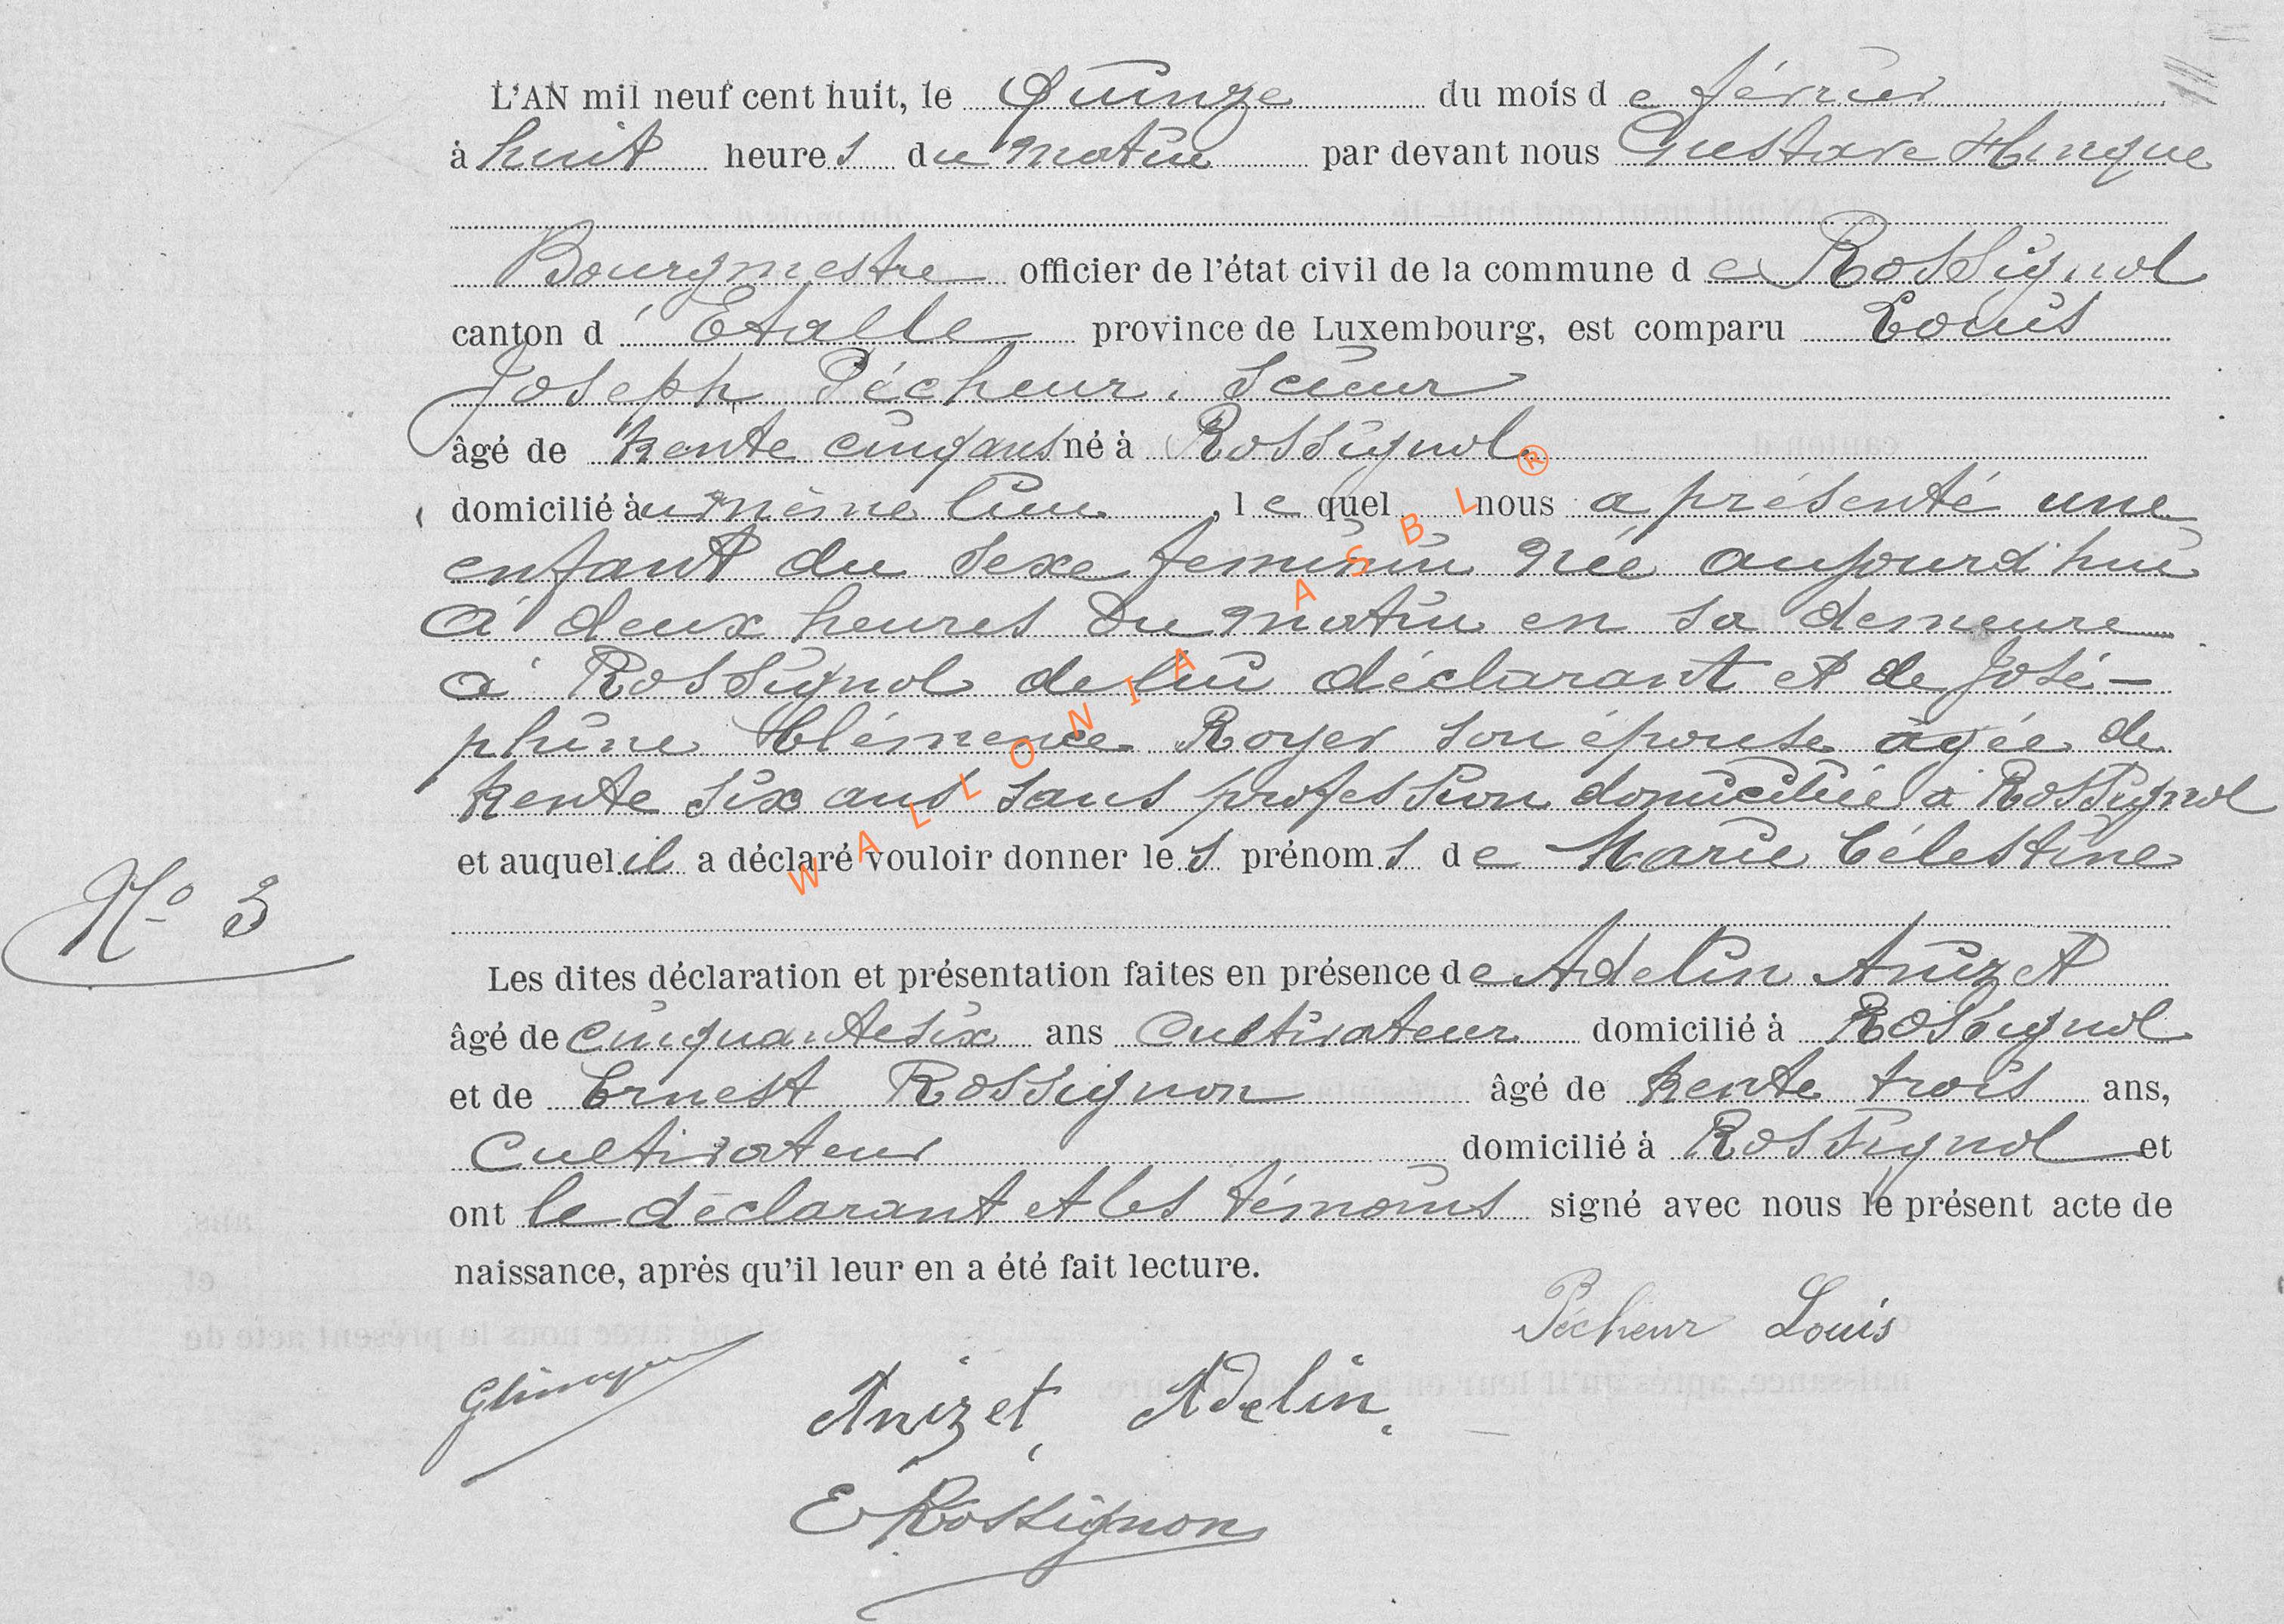 L'AN mil neuf cent huit, le Quinze du mois de février
à huit heures du matin par devant nous Gustave Hinque
Bourgmestre officier de l'état civil de la commune de Rossignol
canton d'Etalle province de Luxembourg, est comparu Louis
Joseph Pécheur, scieur
âgé de trente cinq ans né à Rossignol
domicilié au même lieu, lequel nous a présenté une
enfant du sexe feminin née aujourd'hui
à deux heures du matin en sa demeure
à Rossignol de lui déclarant et de José-
phine Clémence Royer son épouse âgée de
trente six ans sans profession domiciliée à Rossignol
et auquel il a déclaré vouloir donner les prénoms de Marie Célestine
N° 3
Les dites déclaration et présentation faites en présence de Adelin Anizet
âgé de cinquante six ans cultivateur domicilié à Rossignol
et de Ernest Rossignon âgé de trente trois ans,
cultivateur domicilié à Rossignol et
ont le déclarant et les témoins signé avec nous le présent acte de
naissance, après qu'il leur en a été fait lecture.
Pécheur Louis
GHinque
Anizet Adelin.
E Rossignon
WALLONIA ASBL ®